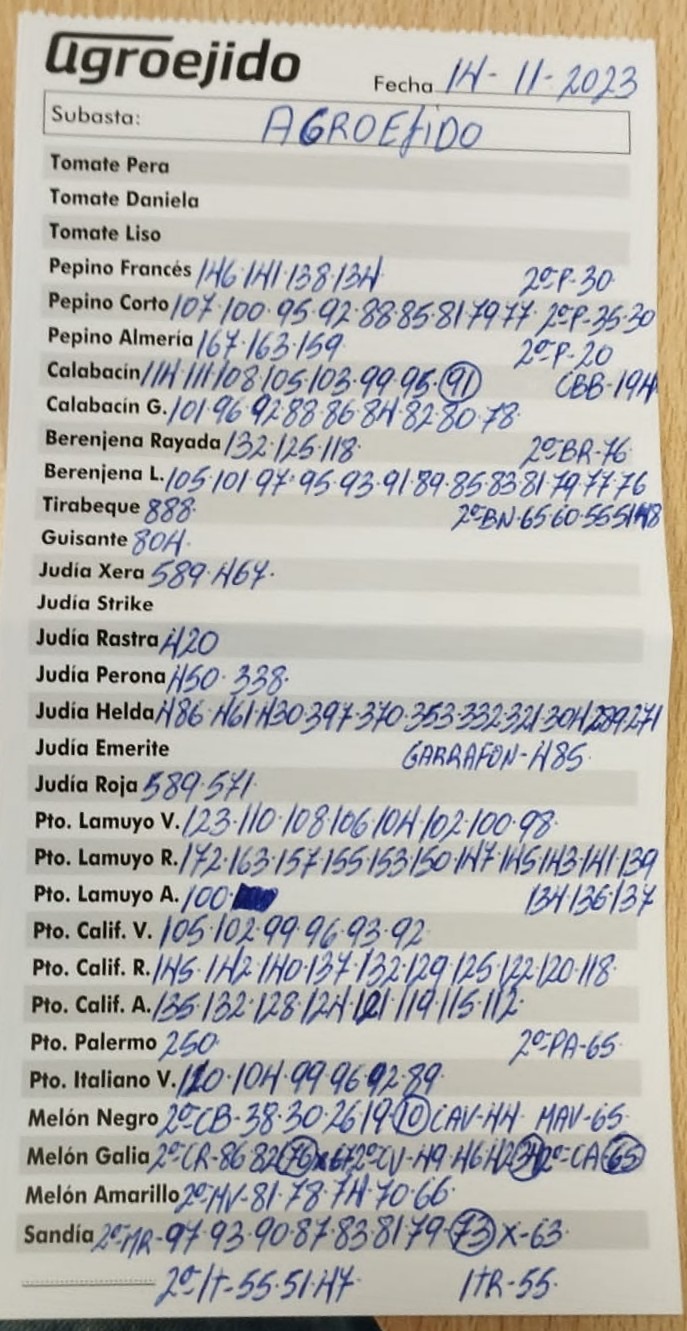 agroejido
Fecha 14-11-2023
Subasta: AGROEJIDO
Tomate Pera
Tomate Daniela
Tomate Liso
Pepino Francés 146·141·138·134 2ºP-30
Pepino Corto 107·100·95·92·88·85·81·79·77 2ºP-35·30
Pepino Almería 167·163·159 2ºP-20
Calabacín 114·111·108·105·103·99·95·91 CBB-194
Calabacín G. 101·96·92·88·86·84·82·80·78
Berenjena Rayada 132·125·118 2ºBR-76
Berenjena L. 105·101·97·95·93·91·89·85·83·81·79·77·76
Tirabeque 888 2ºBN-65·60·55·51·48
Guisante 804
Judía Xera 589·467
Judía Strike
Judía Rastra 420
Judía Perona 450·338
Judía Helda 486·461·430·397·370·353·332·321·304·289·271
Judía Emerite GARRAFON-485
Judía Roja 589·571
Pto. Lamuyo V. 123·110·108·106·104·102·100·98
Pto. Lamuyo R. 172·163·157·155·153·150·147·145·143·141·139
Pto. Lamuyo A. 100 134·136·137
Pto. Calif. V. 105·102·99·96·93·92
Pto. Calif. R. 145·142·140·137·132·129·125·122·120·118
Pto. Calif. A. 135·132·128·124·121·119·115·112
Pto. Palermo 250 2ºPA-65
Pto. Italiano V. 110·104·99·96·92·89
Melón Negro 2ºCB-38·30·26·19·10 CAV-44 MAV-65
Melón Galia 2ºCR-86·82·76 x-67 2ºCV-49·46·42·34 2ºCA-65
Melón Amarillo 2ºMV-81·78·74·70·66
Sandía 2ºMR-97·93·90·87·83·81·79·73 X-63
2ºIT-55·51·47 ITR-55